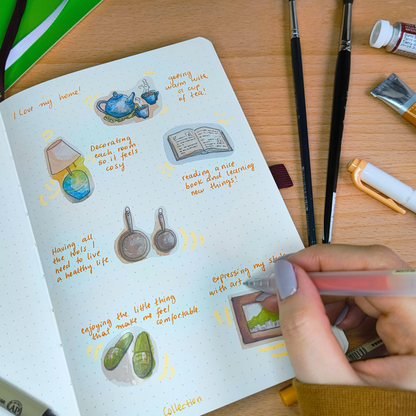 I love my home!
getting
warm with
a cup
of tea!
Decorating
each room
so it feels
cosy
reading a nice
book and learning
new things!
Having all
the tools I
need to live
a healthy life
expressing my
with art
enjoying the little thing
that make me feel
comfortable
Collection